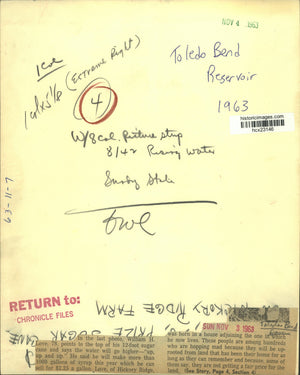 NOV 4 1963
1 col
(Extreme Right)
4
Toledo Bend
Reservoir
1963
historicimages.com
hcx23146
W/8 col. Picture strip
8/42 Rising Water
Sunday State
63-11-7
RETURN to:
CHRONICLE FILES
HICKORY RIDGE FARM
PRIZE SUGAR CANE
SUN NOV 3 1963
In the last photo, William H.
Love, 75, points to the top of his 12-foot sugar
cane and says the water will go higher—"up,
up and up." He said he will make more than
1000 gallons of syrup this year which he can
sell for $2.25 a gallon. Love, of Hickory Ridge,
now lives. These people are among hundreds
who are hopping mad because they will be up-
rooted from land that has been their home for as
long as they can remember and because, some of
them add, they are not getting a fair price for the
land. (See Story, Page 4, Section 6)